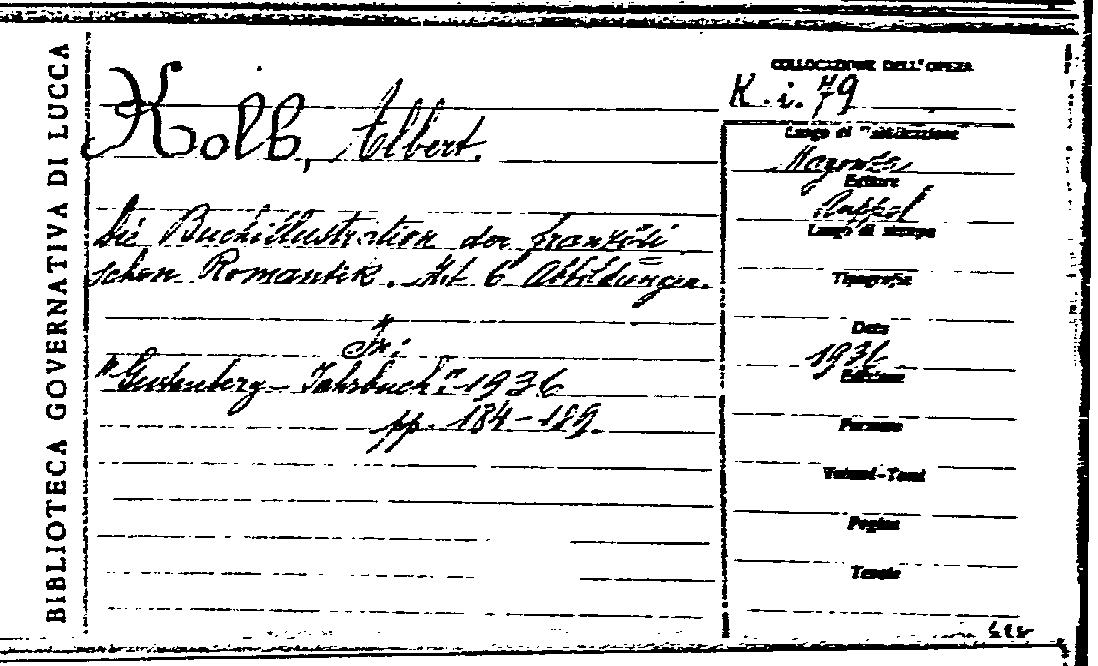 BIBLIOTECA GOVERNATIVA DI LUCCA
Kolb, Albert.
Die Buchillustration der französi
schen Romantik. Mit 6 Abbildungen.
In:
"Gutenberg - Jahrbuch" - 1936
pp. 184-189.
COLLOCAZIONE DELL'OPERA
K. i. 79
Luogo di Pubblicazione
Magonza
Editore
Ruppel
Luogo di stampa
Tipografia
Data
1936
Edizione
Formato
Volumi-Tomi
Pagine
Tavole